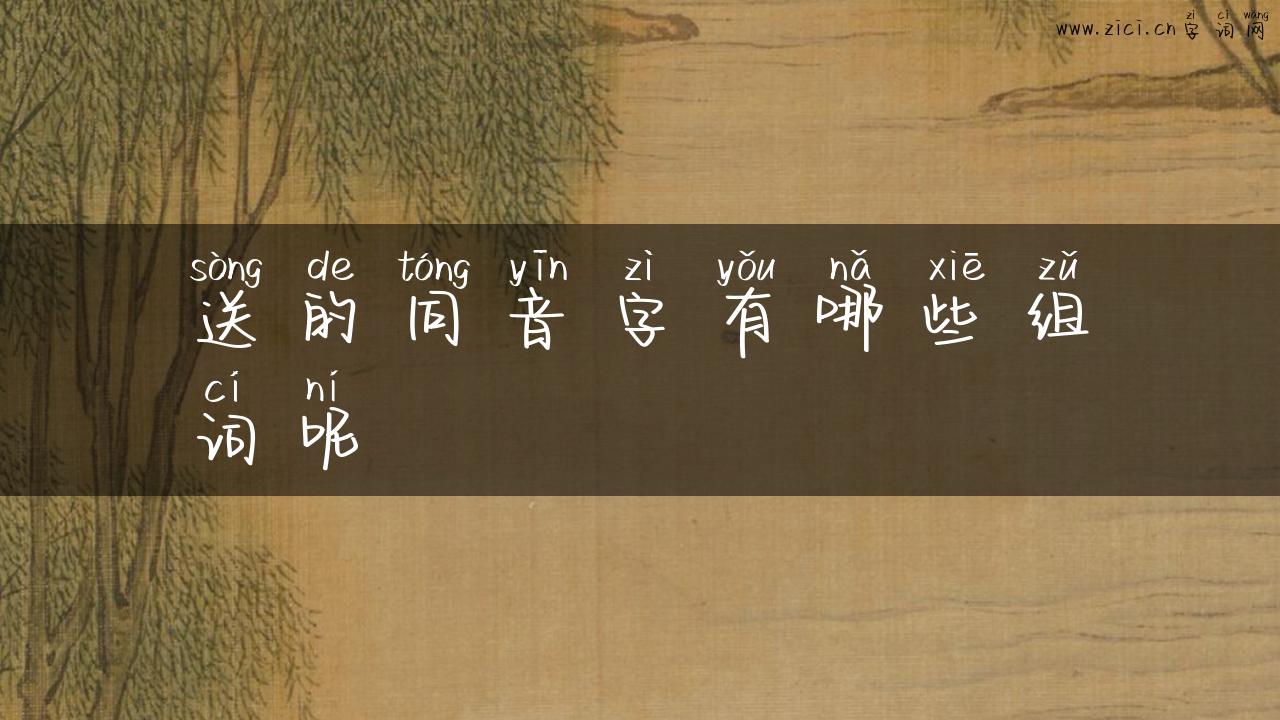 zì cí wǎng
www.zici.cn字词网
sòng de tóng yīn zì yǒu nǎ xiē zǔ
送的同音字有哪些组
cí ní
词呢